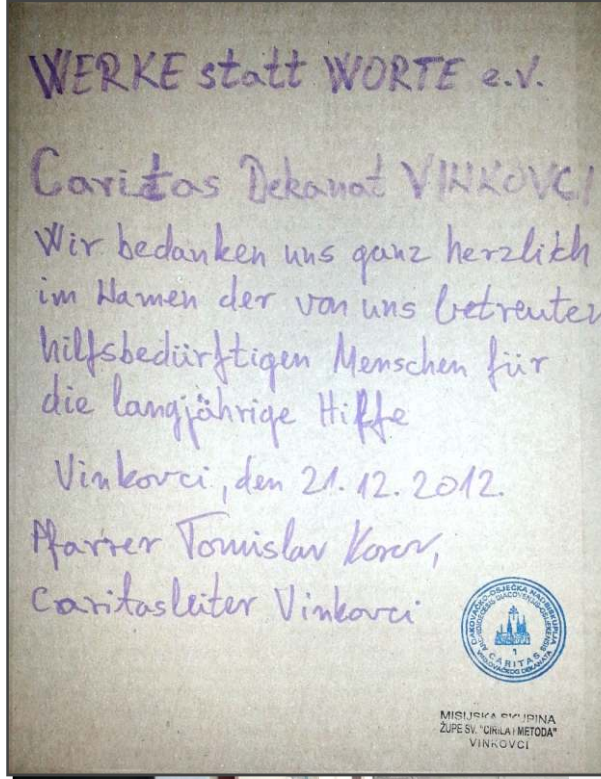 WERKE statt WORTE e.V.
Caritas Dekanat VINKOVCI
Wir bedanken uns ganz herzlich
im Namen der von uns betreuten
hilfsbedürftigen Menschen für
die langjährige Hilfe
Vinkovci, den 21. 12. 2012.
Pfarrer Tomislav
Caritasleiter Vinkovci
ĐAKOVAČKO-OSJEČKA NADBISKUPIJA
CARITAS
VINKOVAČKOG DEKANATA
MISIJSKA SKUPINA
ŽUPE SV. "ĆIRILA I METODA"
VINKOVCI